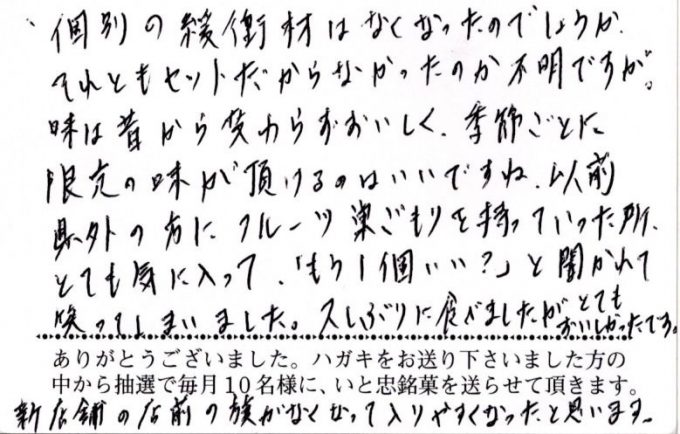 個別の緩衝材はなくなったのでしょうか、
それともセットだからなかったのか不明ですが。
味は昔から変わらずおいしく、季節ごとに
限定の味が頂けるのはいいですね、以前
県外の方にフルーツ巣ごもりを持っていった所、
とても気に入って、「もう1個いい?」と聞かれて
笑ってしまいました。久しぶりに食べましたがとても
おいしかったです。
ありがとうございました。ハガキをお送り下さいました方の
中から抽選で毎月10名様に、いと忠銘菓を送らせて頂きます。
新店舗の店前の旗がなくなって入りやすくなったと思います。